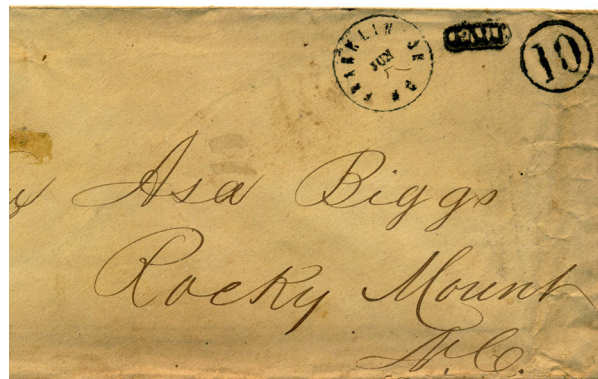 FRANKLIN
JUN
PAID
10
Asa Biggs
Rocky Mount
N.C.